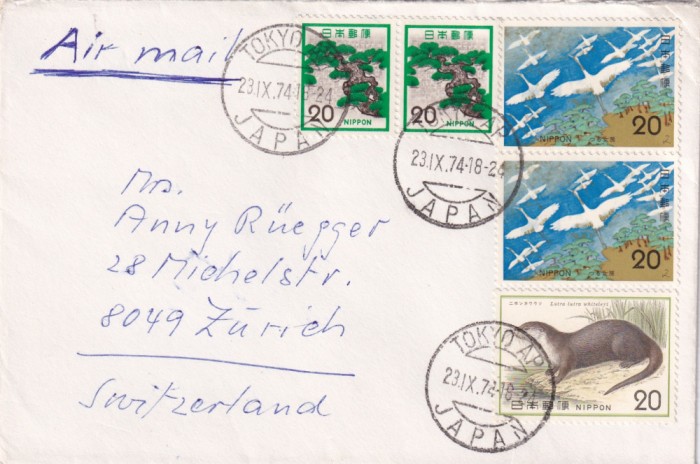 Air mail
TOKYO AP
23.IX.74-18-24
JAPAN
日本郵便
20
NIPPON
日本郵便
20
NIPPON
23.IX.74-18-24
JAPAN
日本郵便
NIPPON
20
日本郵便
NIPPON
20
Mrs.
Anny Rüegger
28 Michelstr.
8049 Zürich
Switzerland
ニホンカワウソ Lutra lutra whiteleyi
日本郵便 NIPPON 20
TOKYO AP
23.IX.74-18-24
JAPAN